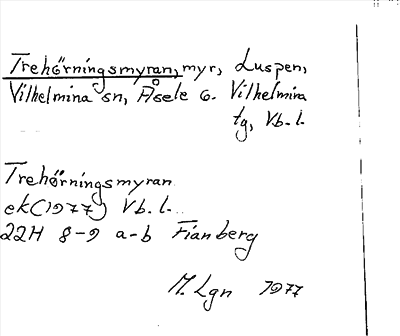 Trehörningsmyran, myr, Luspen,
Vilhelmina sn, Åsele o. Vilhelmina
tg, Vb. l.
Trehörningsmyran
ek (1977) Vb. l.
22H 8-9 a-b Fianberg
M. Lgn 1977